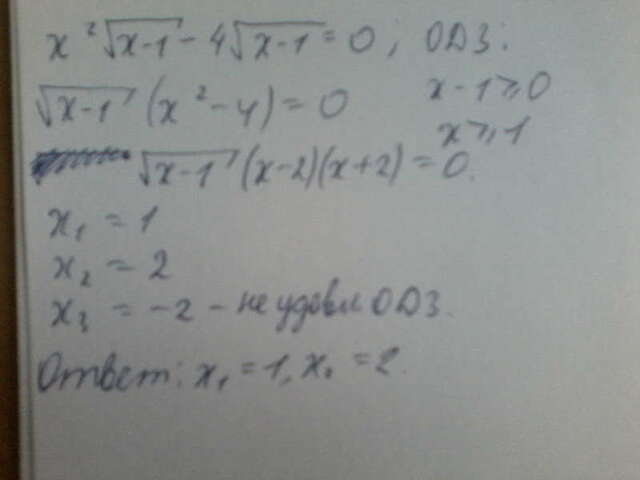 x²√(x-1) - 4√(x-1) = 0; ОДЗ:
√(x-1) (x² - 4) = 0 x - 1 ⩾ 0
x ⩾ 1
√(x-1) (x-2)(x+2) = 0.
x₁ = 1
x₂ = 2
x₃ = -2 - не удовл ОДЗ.
Ответ: x₁ = 1, x₂ = 2.